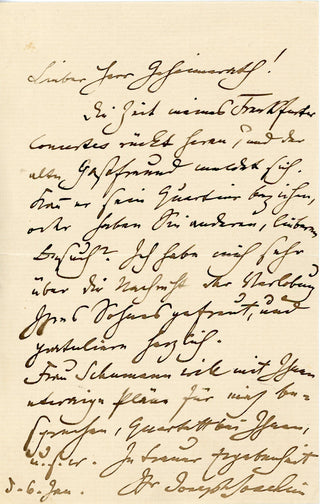 Lieber Herr Geheimerath!
Die Zeit meines Frankfurter
Concertes rückt heran, und der
alte Gastfreund meldet sich.
Kann er sein Quartier beziehen,
oder haben Sie anderen, lieberen
Besuch? Ich habe mich sehr
über die Nachricht der Verlobung
Ihres Sohnes gefreut, und
gratuliere herzlich.
Frau Schumann will mit Ihnen
etwaige Pläne für mich be-
sprechen, Quartett bei Ihnen,
u.s.w. In treuer Ergebenheit
Ihr Joseph Joachim
d. 6. Jan.